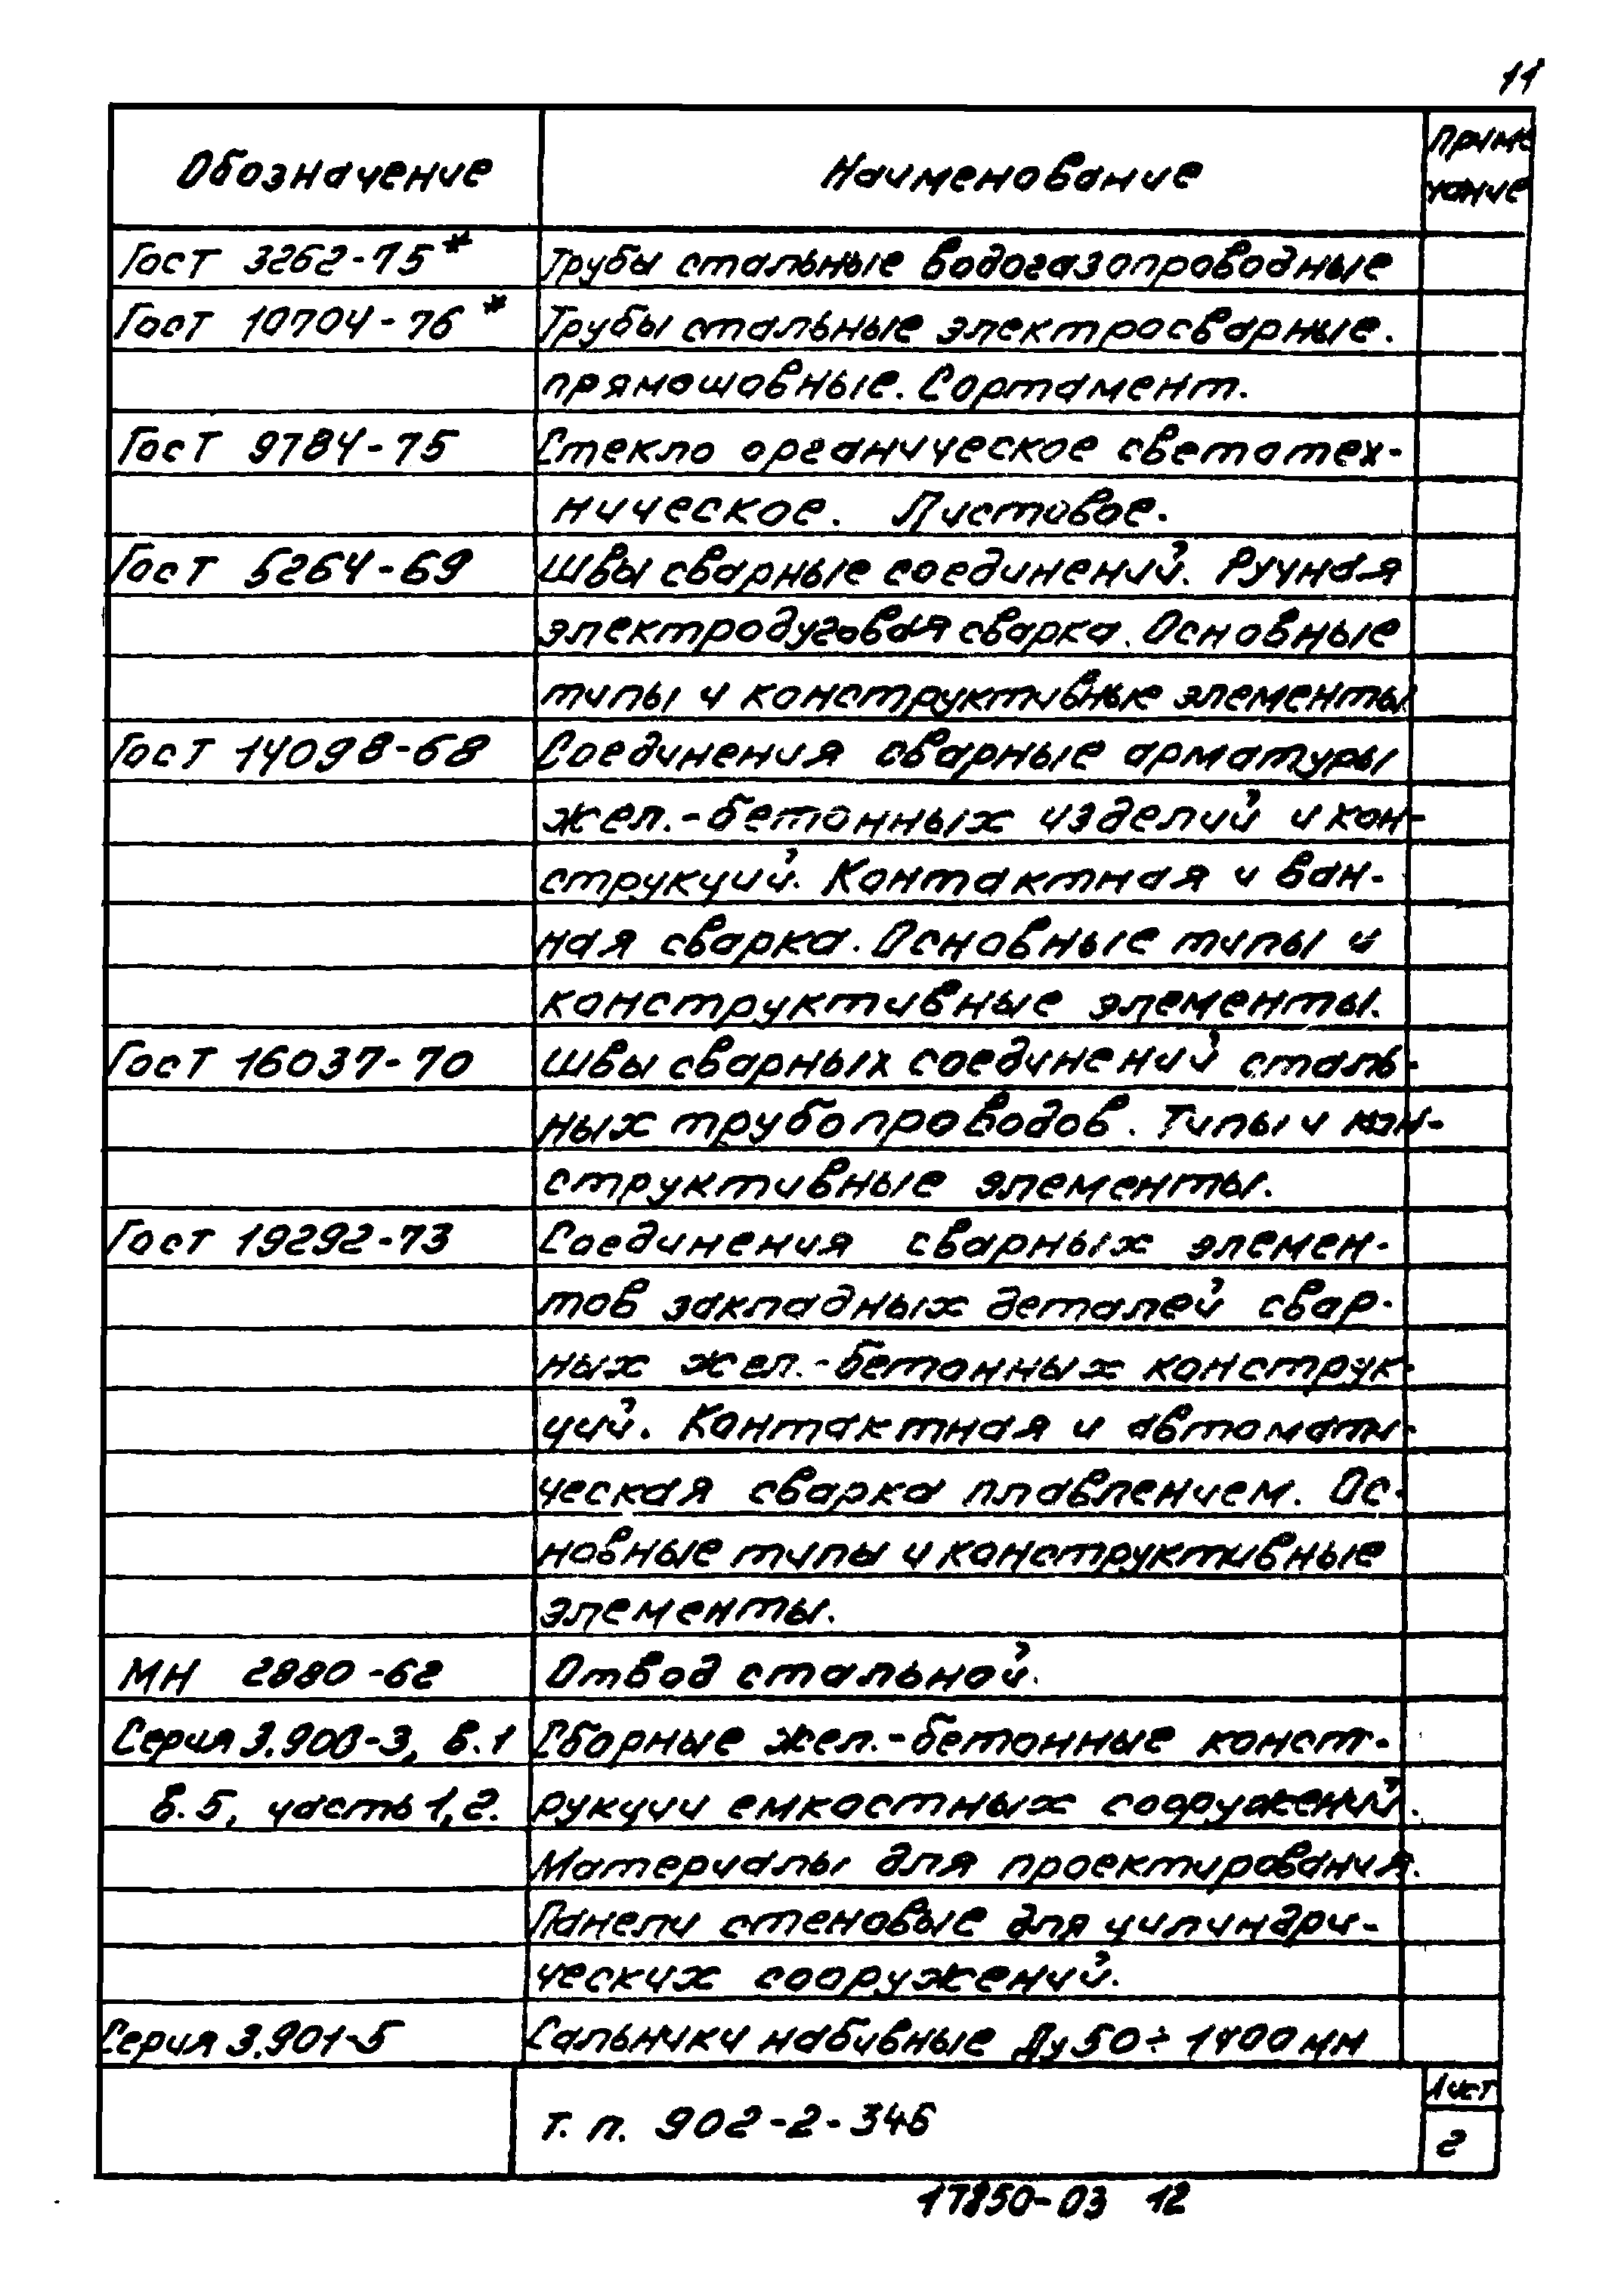 11
Обозначение Наименование Приме
чание
Гост 3262-75* Трубы стальные водогазопроводные
Гост 10704-76* Трубы стальные электросварные.
прямошовные. Сортамент.
Гост 9784-75 Стекло органическое светотех-
ническое. Листовое.
Гост 5264-69 Швы сварные соединений. Ручная
электродуговая сварка. Основные
типы и конструктивные элементы
Гост 14098-68 Соединения сварные арматуры
жел.-бетонных изделий и кон-
струкций. Контактная и ван-
ная сварка. Основные типы и
конструктивные элементы.
Гост 16037-70 Швы сварных соединений сталь-
ных трубопроводов. Типы и кон-
структивные элементы.
Гост 19292-73 Соединения сварных элемен-
тов закладных деталей свар-
ных жел.-бетонных конструк-
ций. Контактная и автомати-
ческая сварка плавлением. Ос-
новные типы и конструктивные
элементы.
МН 2880-62 Отвод стальной.
Серия 3.900-3, в.1 Сборные жел.-бетонные конст-
в.5, часть 1,2. рукции емкостных сооружений.
Материалы для проектирования.
Панели стеновые для цилиндри-
ческих сооружений.
Серия 3.901-5 Сальники набивные Ду 50÷1400 мм
т. п. 902-2-346 Лист
2
17850-03 12